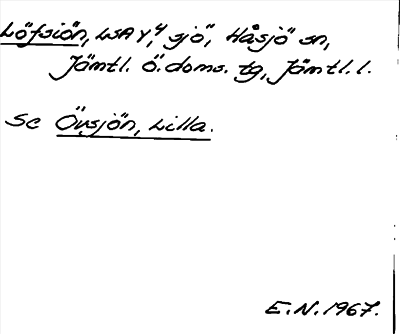 Löfsjön, LSA Y, 4 sjö, Håsjö sn,
Jämtl. Ö. doms. tg, Jämtl. l.
Se Övsjön, Lilla.
E.N. 1967.